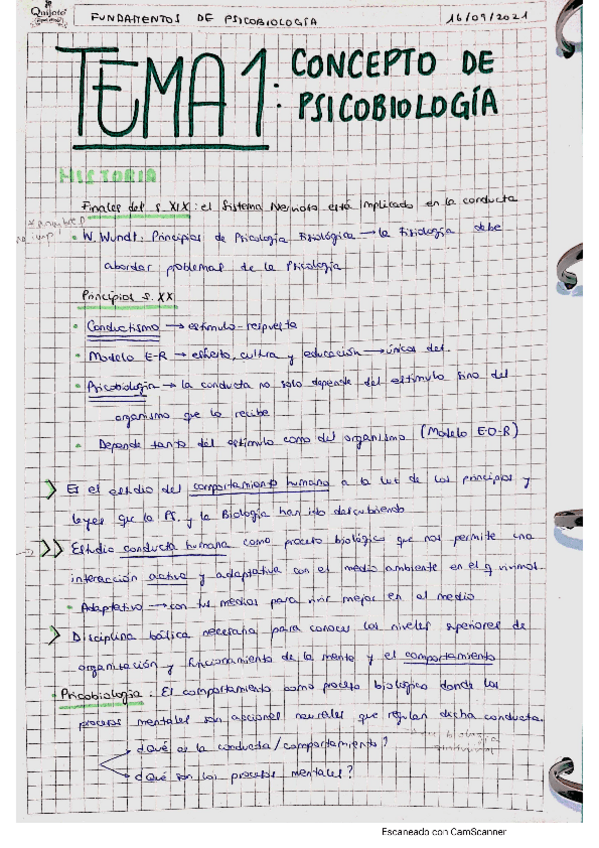 Quijote
FUNDAMENTOS DE PSICOBIOLOGÍA
16/09/2021
TEMA 1: CONCEPTO DE
PSICOBIOLOGÍA
HISTORIA
Finales del s. XIX: el Sistema Nervioso está implicado en la conducta
• W. Wundt: Principios de Psicología Fisiológica → la Fisiología debe
abordar problemas de la Psicología
Principios s. XX
• Conductismo → estímulo-respuesta
• Modelo E-R → esfuerzo, cultura y educación → únicos det.
• Psicobiología → la conducta no solo depende del estímulo sino del
organismo que lo recibe
• Depende tanto del estímulo como del organismo (Modelo E-O-R)
> Es el estudio del comportamiento humano a la luz de los principios y
leyes que la Ps. y la Biología han ido descubriendo
→ >> Estudio conducta humana como proceso biológico que nos permite una
interacción activa y adaptativa con el medio ambiente en el q vivimos
• Adaptativo → con tus medios para vivir mejor en el medio
> Disciplina básica necesaria para conocer los niveles superiores de
organización y funcionamiento de la mente y el comportamiento
• Psicobiología: El comportamiento como proceso biológico donde los
procesos mentales son acciones neurales que regulan dicha conducta.
biología
¿Qué es la conducta/comportamiento?
¿Qué son los procesos mentales?
Escaneado con CamScanner